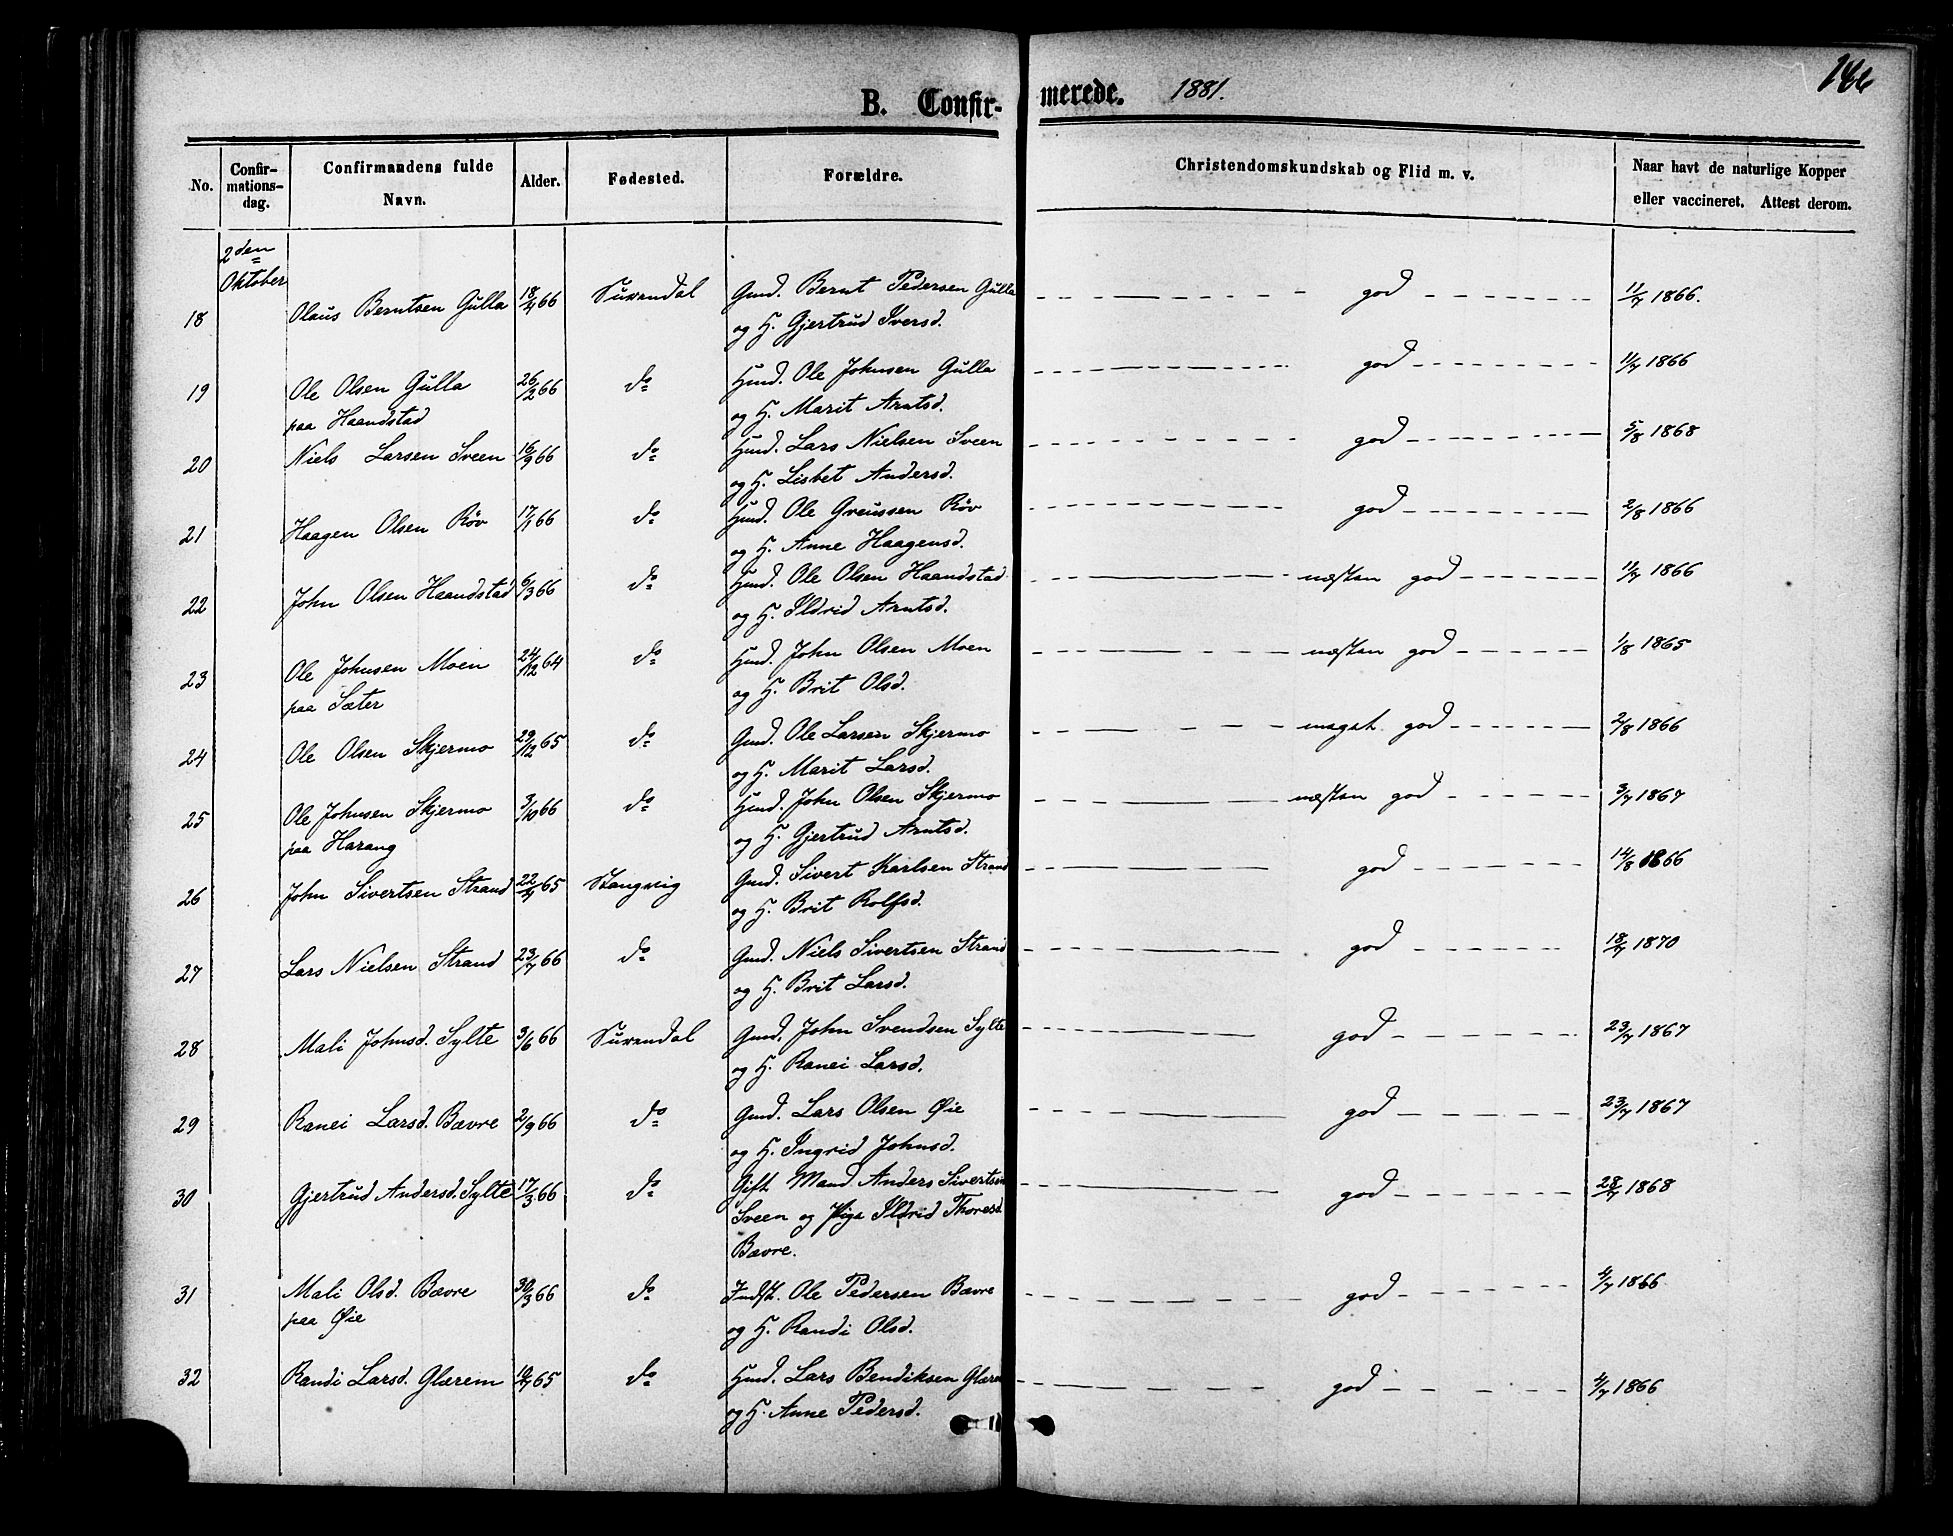 B. Confir-merede. 1881.
No. Confir-mations-dag. Confirmandens fulde Navn. Alder. Fødested. Forældre. Christendomskundskab og Flid m. v. Naar havt de naturlige Kopper eller vaccineret. Attest derom.
2den Oktober
18 Olaus Berntsen Gulla 18/4 66 Surendal Gmd. Bernt Pedersen Gulla god 11/7 1866.
og H. Gjertrud Iversd.
19 Ole Olsen Gulla 26/2 66 do Hmd. Ole Johnsen Gulla god 11/7 1866
paa Haandstad og H. Marit Arntsd.
20 Niels Larsen Sveen 16/9 66 do Hmd. Lars Nielsen Sveen god 5/8 1868
og H. Lisbet Andersd.
21 Haagen Olsen Røv 17/1 66 do Hmd. Ole Greussen Røv god 2/8 1866
og H. Anne Haagensd.
22 John Olsen Haandstad 6/3 66 do Hmd. Ole Olsen Haandstad næsten god 11/7 1866
og H. Ildrid Arntsd.
23 Ole Johnsen Moen 24/12 64 do Hmd. John Olsen Moen næsten god 1/8 1865
paa Sæter og H. Brit Olsd.
24 Ole Olsen Skjermo 29/12 65 do Gmd. Ole Larsen Skjermo meget god 2/8 1866
og H. Marit Larsd.
25 Ole Johnsen Skjermo 3/10 66 do Hmd. John Olsen Skjermo næsten god 3/7 1867
paa Harang og H. Gjertrud Arntsd.
26 John Sivertsen Strand 22/4 65 Stangvig Gmd. Sivert Karlsen Strand god 14/8 1866
og H. Brit Rolfsd.
27 Lars Nielsen Strand 23/7 66 do Gmd. Niels Sivertsen Strand god 18/7 1870
og H. Brit Larsd.
28 Mali Johnsd. Sylte 3/6 66 Surendal Gmd. John Svendsen Sylte god 23/7 1867
og H. Ranei Larsd.
29 Ranei Larsd. Bævre 2/9 66 do Gmd. Lars Olsen Øie god 23/7 1867
og H. Ingrid Johnsd.
30 Gjertrud Andersd. Sylte 17/3 66 do Gift Mand Anders Sivertsen god 28/7 1868
Sveen og Pige Ildrid Thoresd.
Bævre.
31 Mali Olsd. Bævre 30/3 66 do Indst. Ole Pedersen Bævre god 4/7 1866
paa Øie og H. Randi Olsd.
32 Randi Larsd. Glærem 65 do Hmd. Lars Bendiksen Glærem god 4/7 1866
og H. Anne Pedersd.